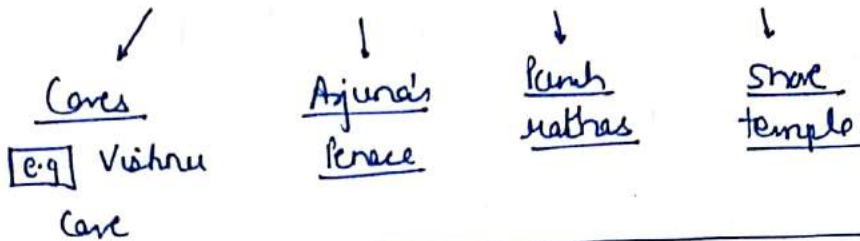 Caves
e.g Vishnu
Cave
Arjuna's
Penace
Panch
rathas
Shore
temple